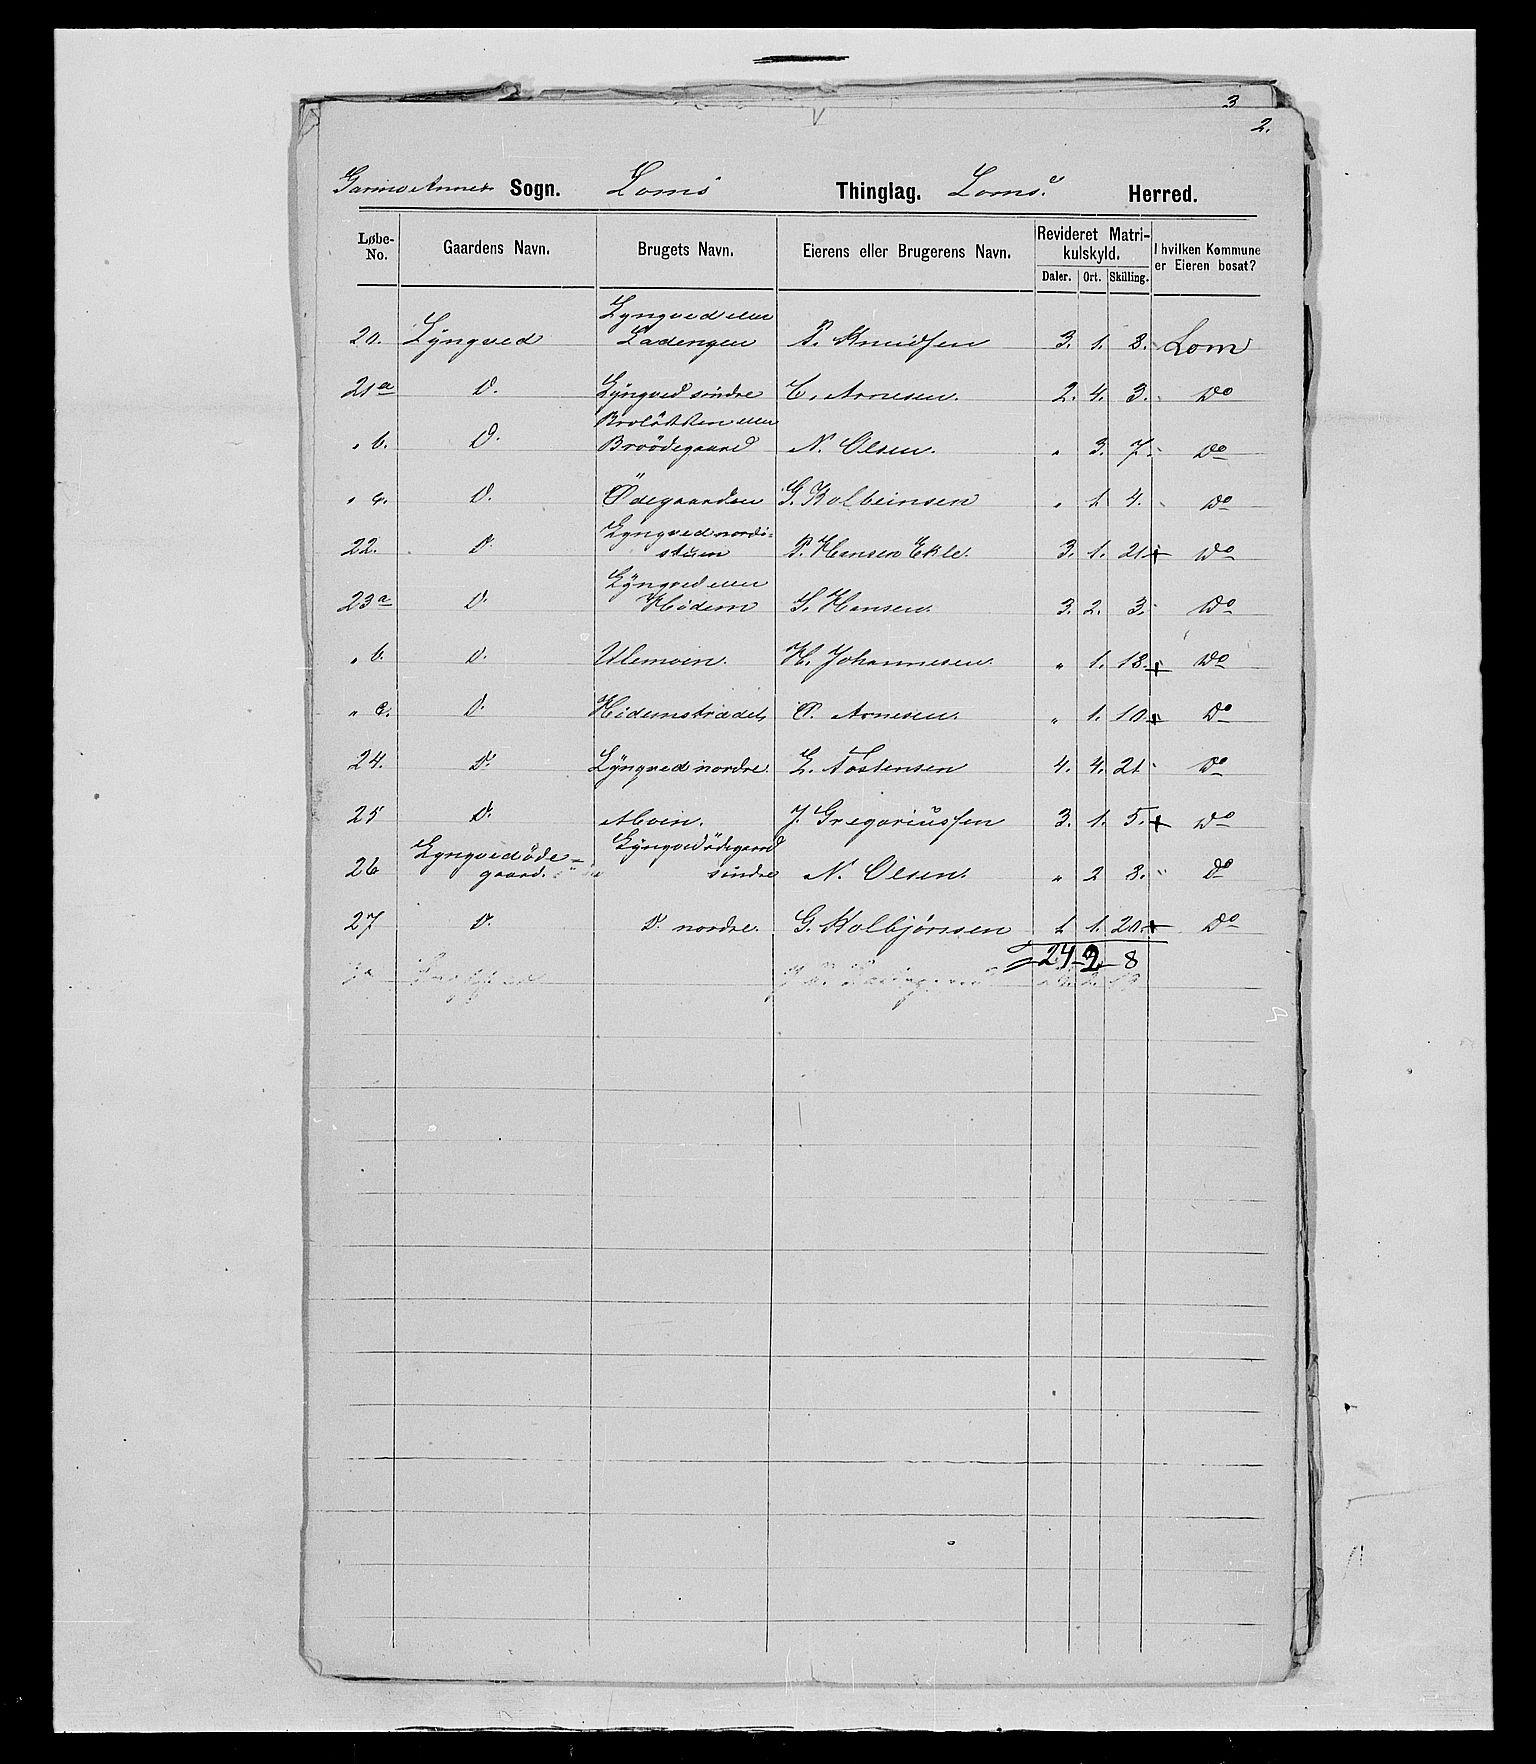 3
2.
Garmo Annex Sogn. Loms Thinglag. Loms Herred.
Løbe-No. Gaardens Navn. Brugets Navn. Eierens eller Brugerens Navn. Revideret Matri-kulskyld. I hvilken Kommune er Eieren bosat?
Daler. Ort. Skilling.
Lyngved eller
20. Lyngved Ladengen P. Knudsen 3. 1. 8. Lom
21a D. Lyngved søndre E. Arnesen. 2. 4. 3. Do
Broløkken eller
" b. D. Broödegaard N. Olsen. " 3. 7. Do
" c. D. Ödegaarden G. Kolbeinsen " 1 4. Do
Lyngved nordi-
22. D. stuen P. Hansen Ekle. 3. 1. 21 Do
Lyngved eller
23a D. Hidem S. Hansen. 3. 2. 3. Do
" b. D. Ulemoen. H. Johannesen. " 1. 18. Do
" c. D. Hidemstrædet O. Arnesen. " 1. 10. Do
24. D. Lyngved nordre. L. Tostensen 4. 4. 21 Do
25 D. Moen. J. Gregoriussen 3. 1. 5. Do
Lyngvedöde- Lyngvedödegaard
26 gaard. söndre N. Olsen. " 2 8. Do
27 D. D. nordre. G. Kolbjørnsen 1 1. 20. Do
24-2-8